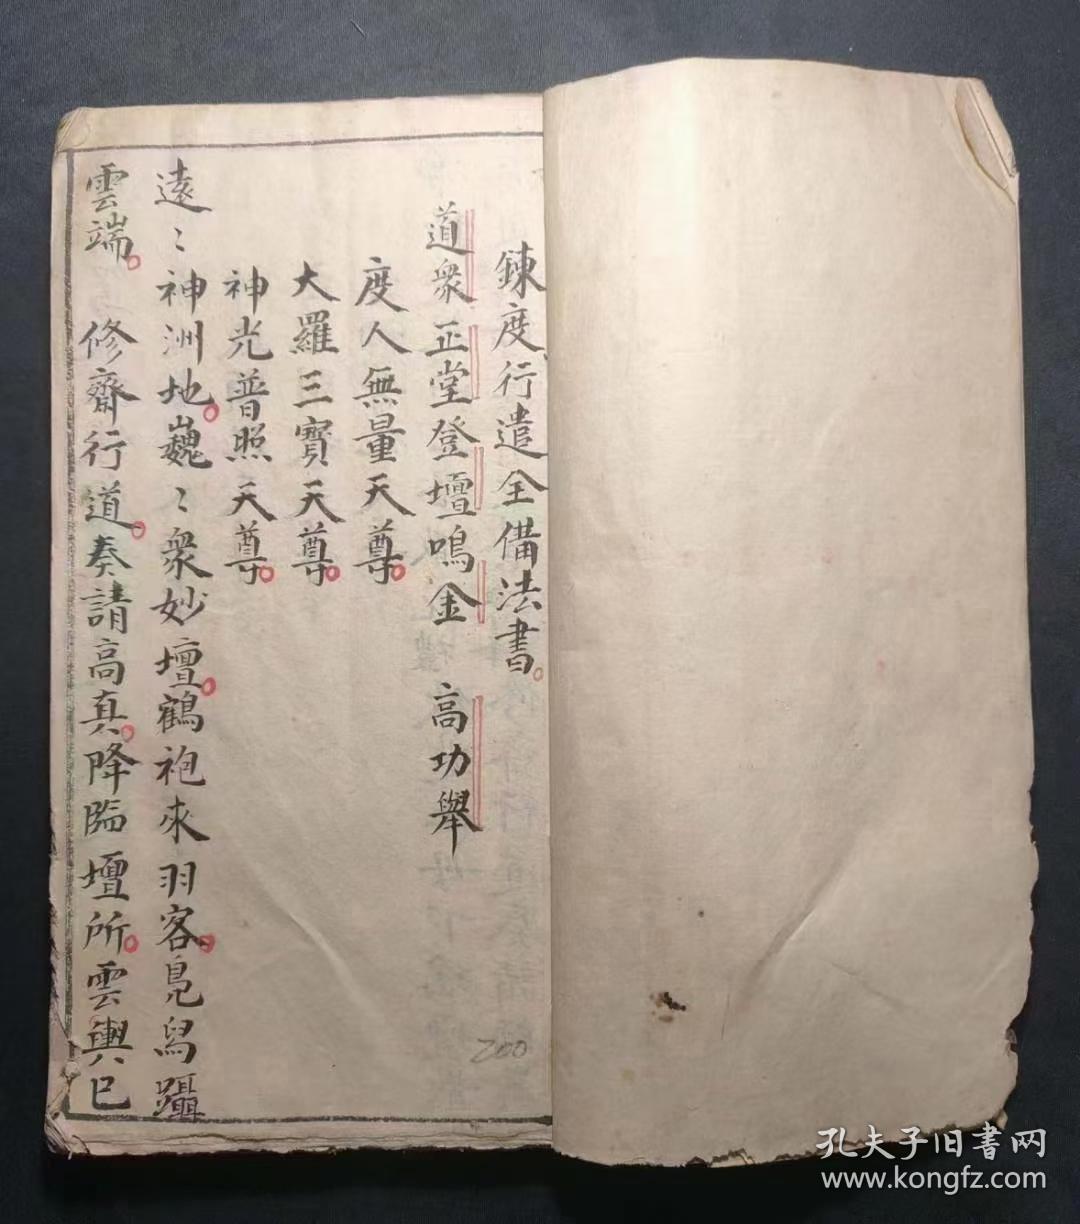 鍊度行遣全備法書。
道衆正堂登壇鳴金　高功舉
度人無量天尊。
大羅三寶天尊。
神光普照天尊。
遠〻神洲地。巍〻衆妙壇。鶴袍來羽客。鳧舄躡
雲端。　修齋行道。奏請高真。降臨壇所。雲輿已
200
孔夫子旧書网
www.kongfz.com